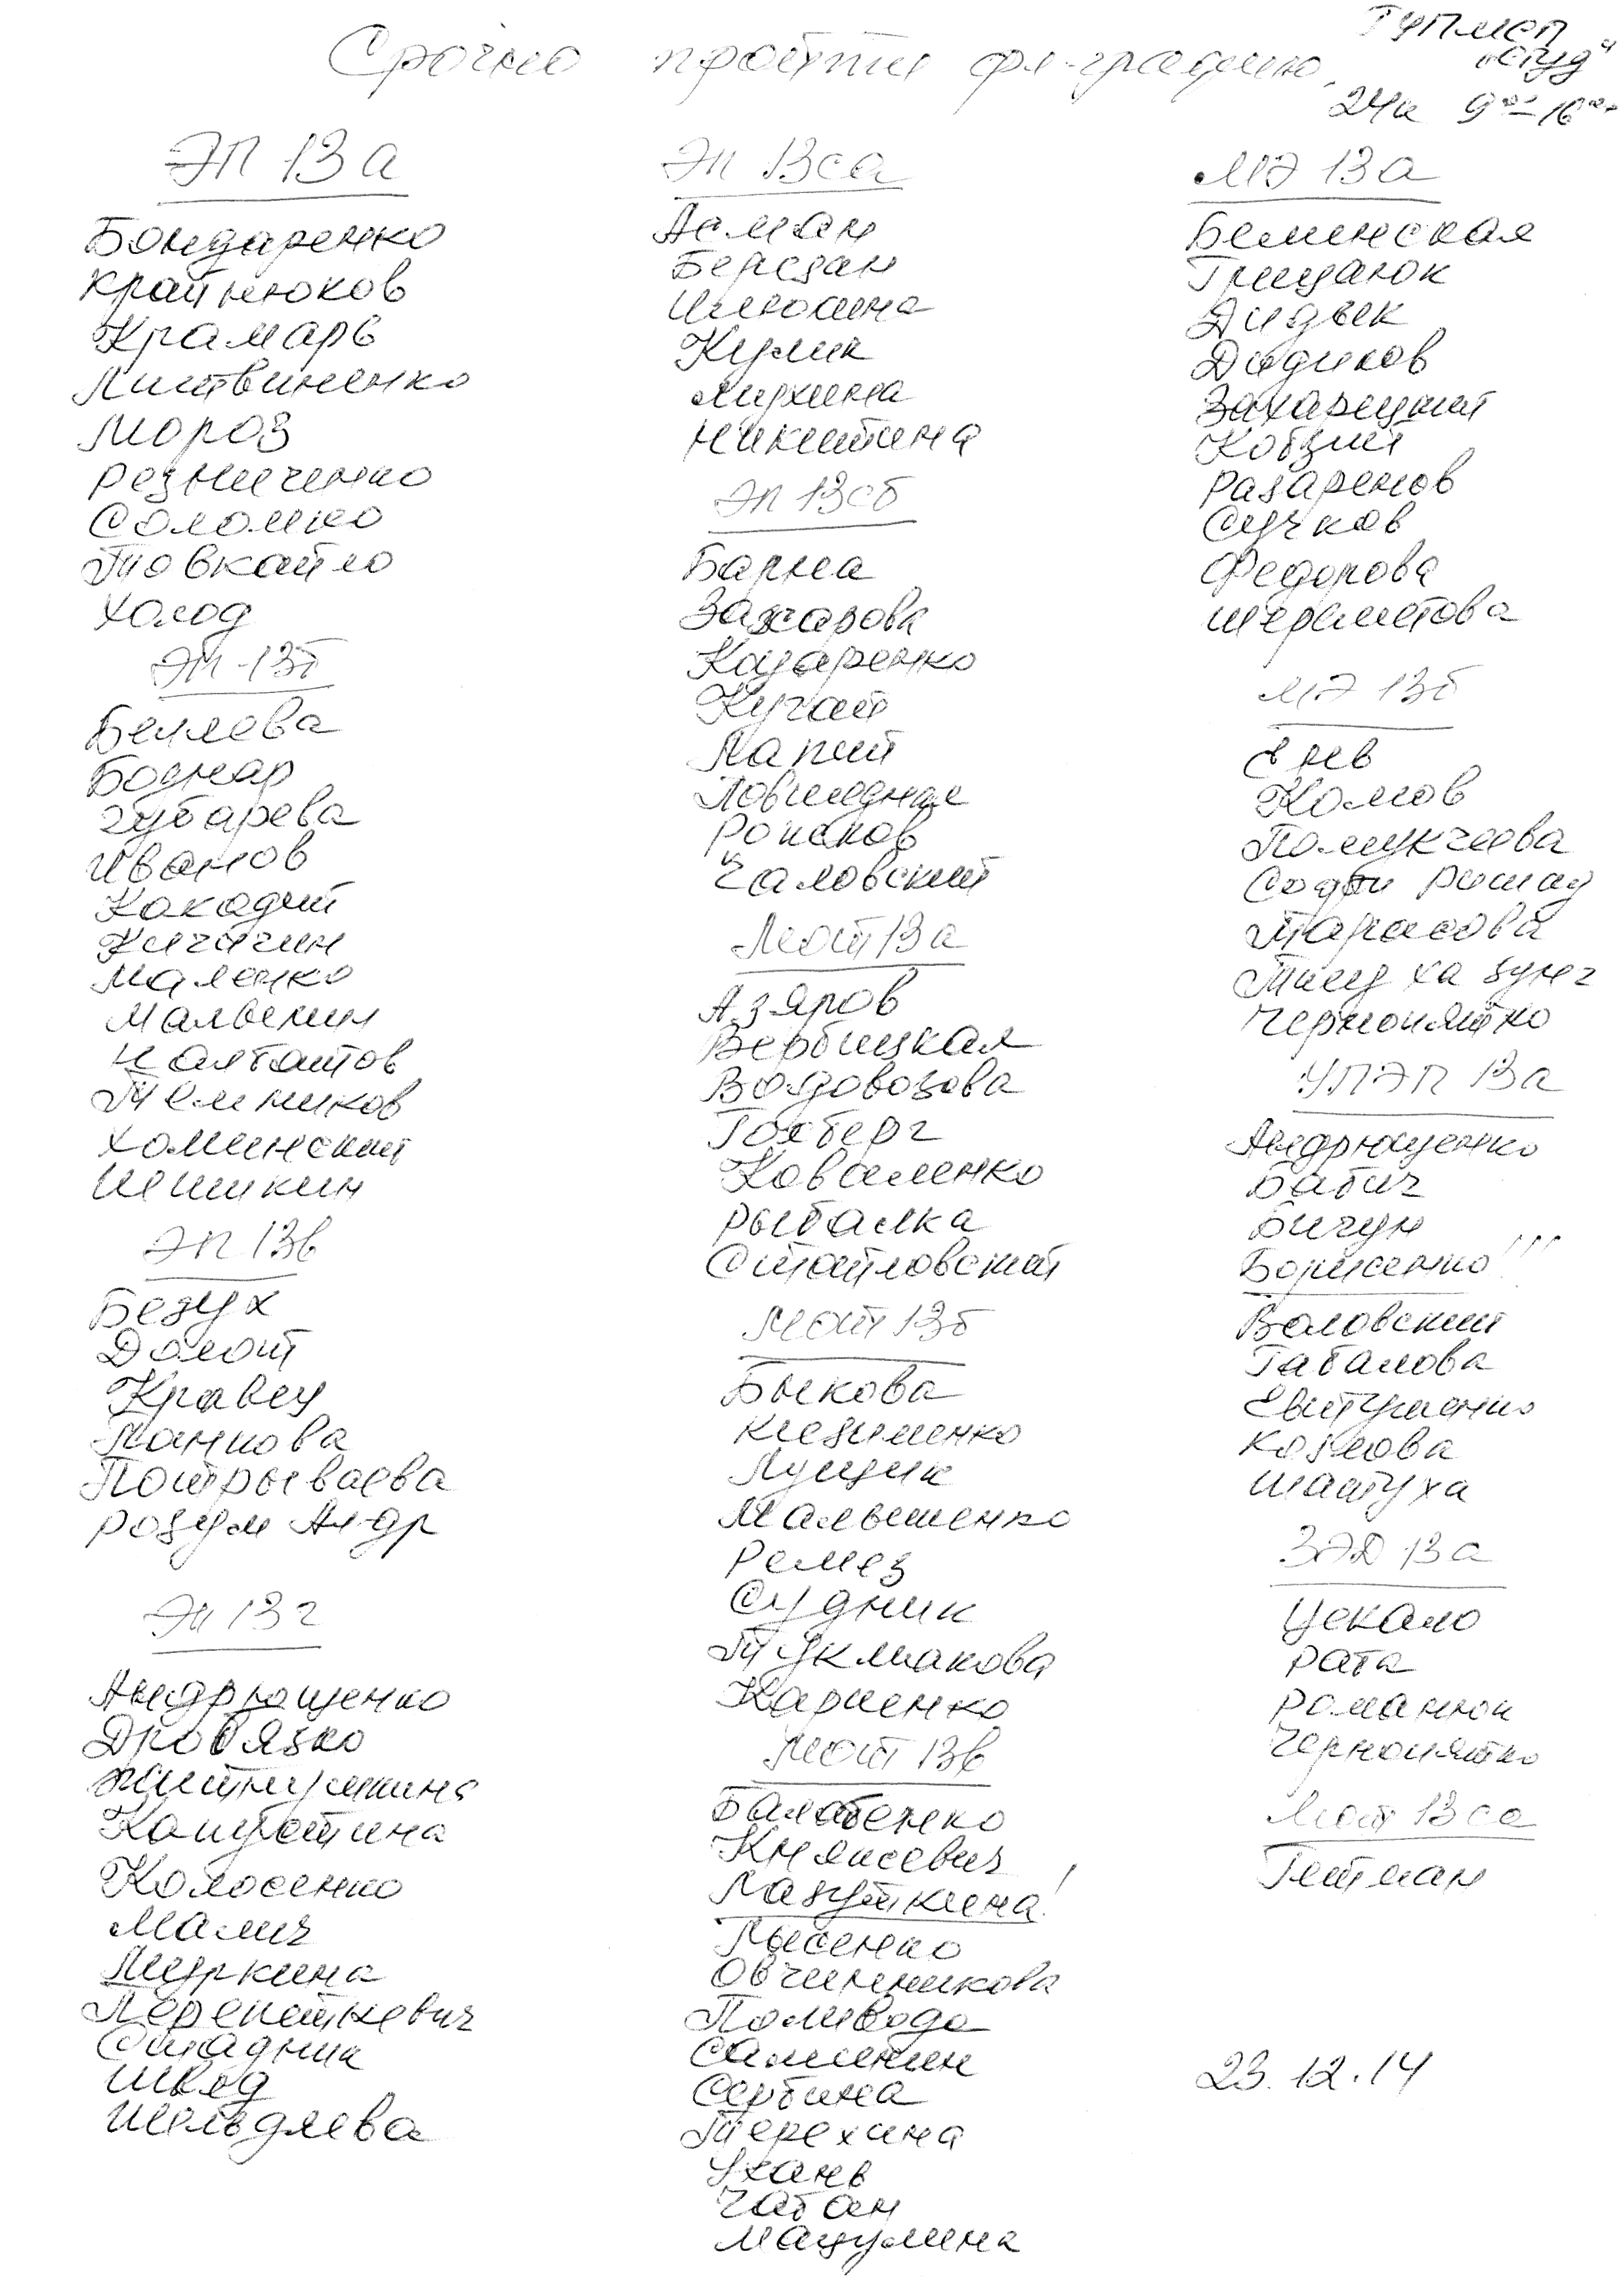 Срочно пройти фл-графию
"Студ"
24а 9⁰⁰-16⁰⁰
ЭП 13а
Бондаренко
Крайнюков
Крамарь
Литвиненко
Мороз
Резниченко
Соломко
Товкайло
Холод
ЭП-13б
Беляева
Боднар
Зубарева
Иванов
Какадий
Кичигин
Маленко
Малыгин
Налбатов
Темников
Хоминский
Шишкин
ЭП 13в
Безух
Долот
Кравец
Панкова
Потрываева
Розум Андр
ЭП 13г
Андрющенко
Дров'язко
Житнушкина
Капустина
Колосенко
Малич
Муркина
Перепяткевич
Стадник
Швед
Шельдяева
ЭП 13са
Асман
Березан
Илюшина
Кулик
Мирхина
Никитина
ЭП 13сб
Барна
Захарова
Назаренко
Кучай
Лапий
Повшедная
Роисков
Чаловский
Меот 13а
Азаров
Вербицкая
Водовозова
Гохберг
Коваленко
Рыбалка
Стайловский
Меот 13б
Быкова
Клезименко
Лущик
Малышенко
Ремез
Судник
Тукмакова
Карпенко
Меот 13в
Балабенко
Княгевич
Лазуткина!
Лысенко
Овчинникова
Поливода
Самынин
Сербина
Терехина
Ухань
Чабан
Мацулина
МЭ 13а
Белинская
Грицанюк
Дидык
Дядиков
Захарецкий
Кобзий
Разаренов
Сучков
Федорова
Шераметова
МЭ 13б
Енев
Комов
Полукчеева
Саади Решад
Тарасова
Чернопятко
УПЭП 13а
Андрющенко
Бабич
Бичун
Борисенко!!!
Воловский
Габалова
Евтушенко
Козлова
Шаптуха
ЗЭД 13а
Цекало
Рата
Романюк
Чернопятко
Меот 13са
Гетман
23.12.14